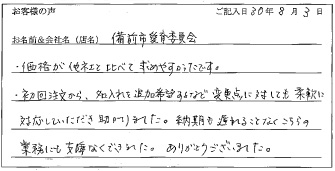 お客様の声 ご記入日 30年 8月 3日
お名前&会社名(店名) 備前市教育委員会
・価格が他社と比べて求めやすかったです。
・初回注文から、名入れを追加希望するなど変更点に対しても柔軟に
対応していただき助かりました。納期も遅れることなくこちらの
業務にも支障なくできました。ありがとうございました。